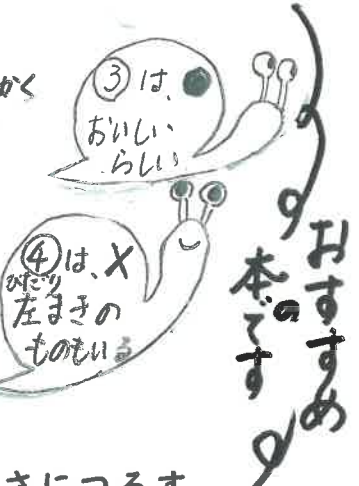 かく
③は、●
おいしい
らしい
④は、X
ひだり
左まきの
ものもいる
おすすめ
の
本です
さにつるす